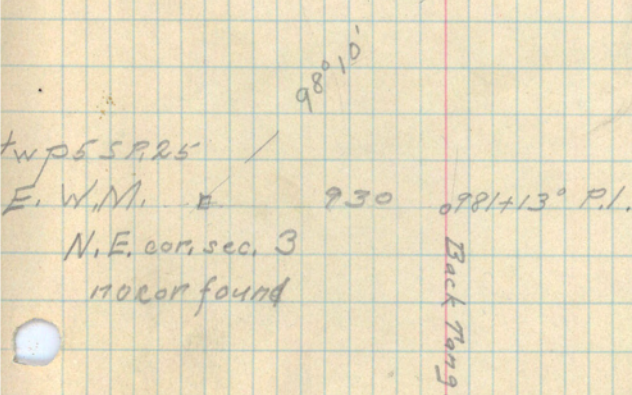 98°10'
twp5 SR.25
E. W.M. E. 930 981+13° P.I.
N.E. cor. sec. 3
no cor found
Back Tang